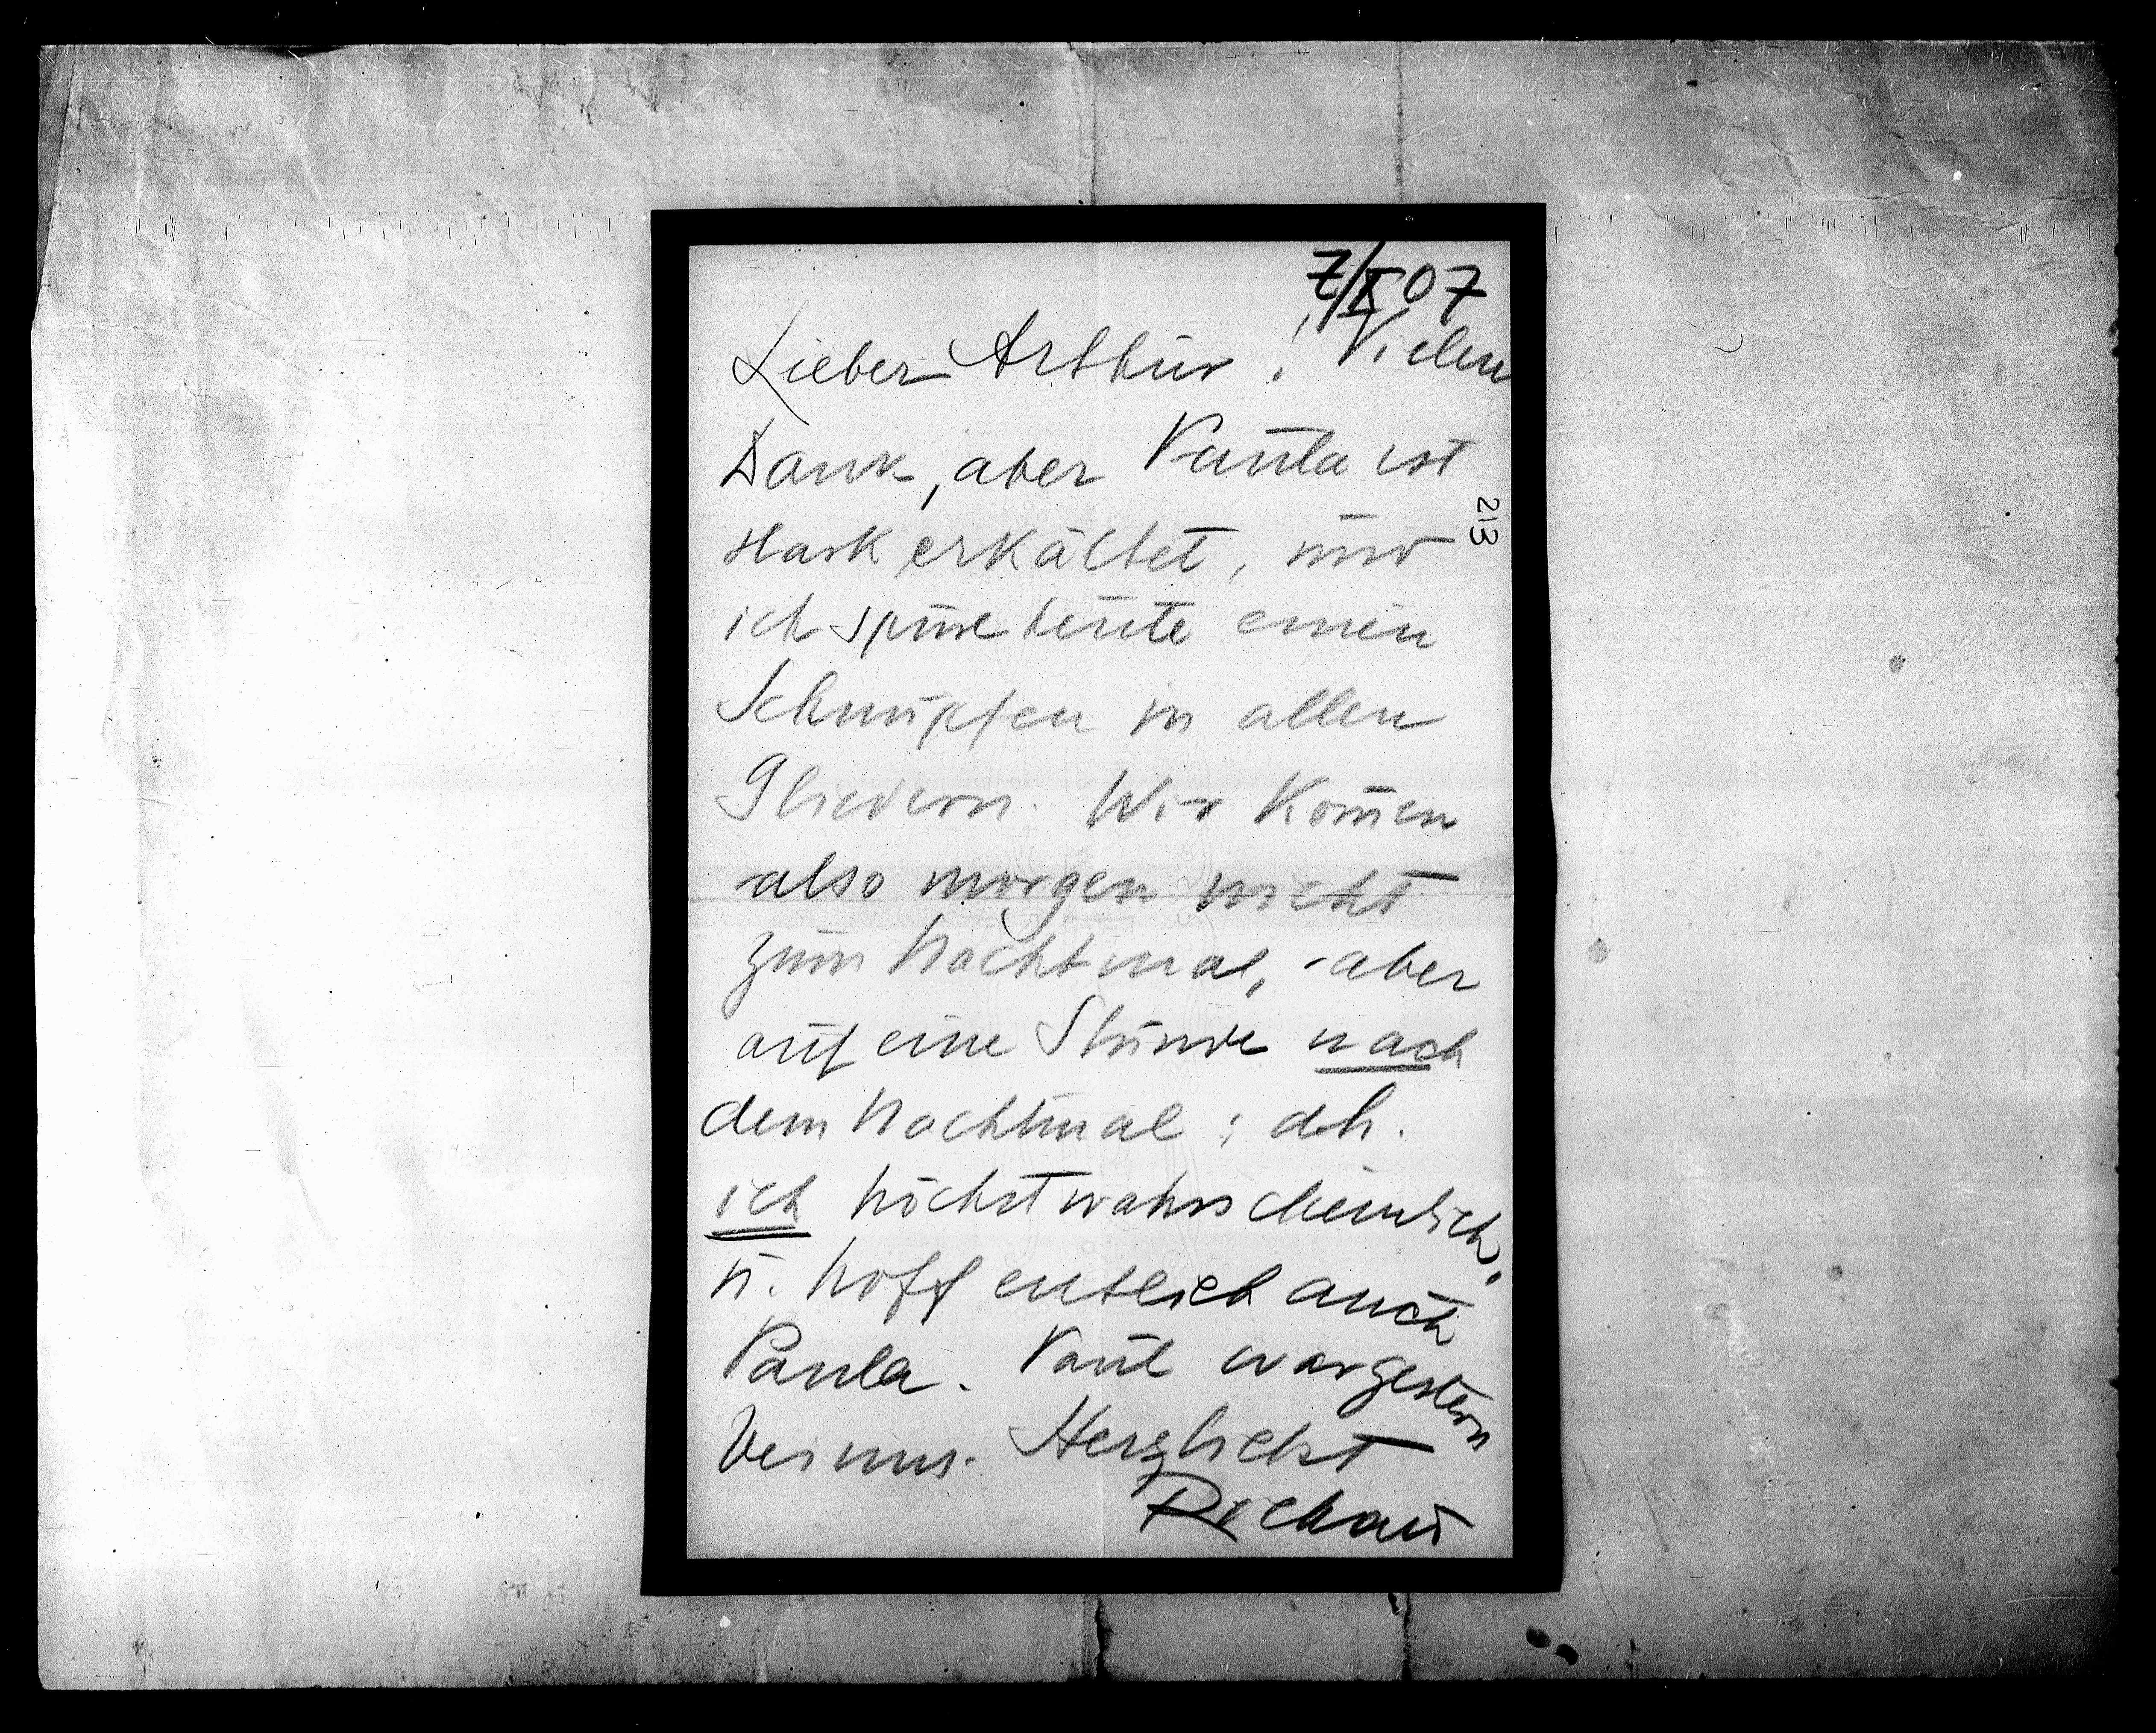 7/X 07
Lieber Arthur! Vielen
Dank, aber Paula ist
stark erkältet, und
ich spüre heute einen
Schnupfen in allen
Gliedern. Wir kom̄en
also morgen nicht
zum Nachtmal, aber
auf eine Stunde nach
dem Nachtmal; d.h.
ich höchstwahrscheinlich,
u. hoffentlich auch
Paula. Paul war gestern
bei uns. Herzlichst
Richard
213